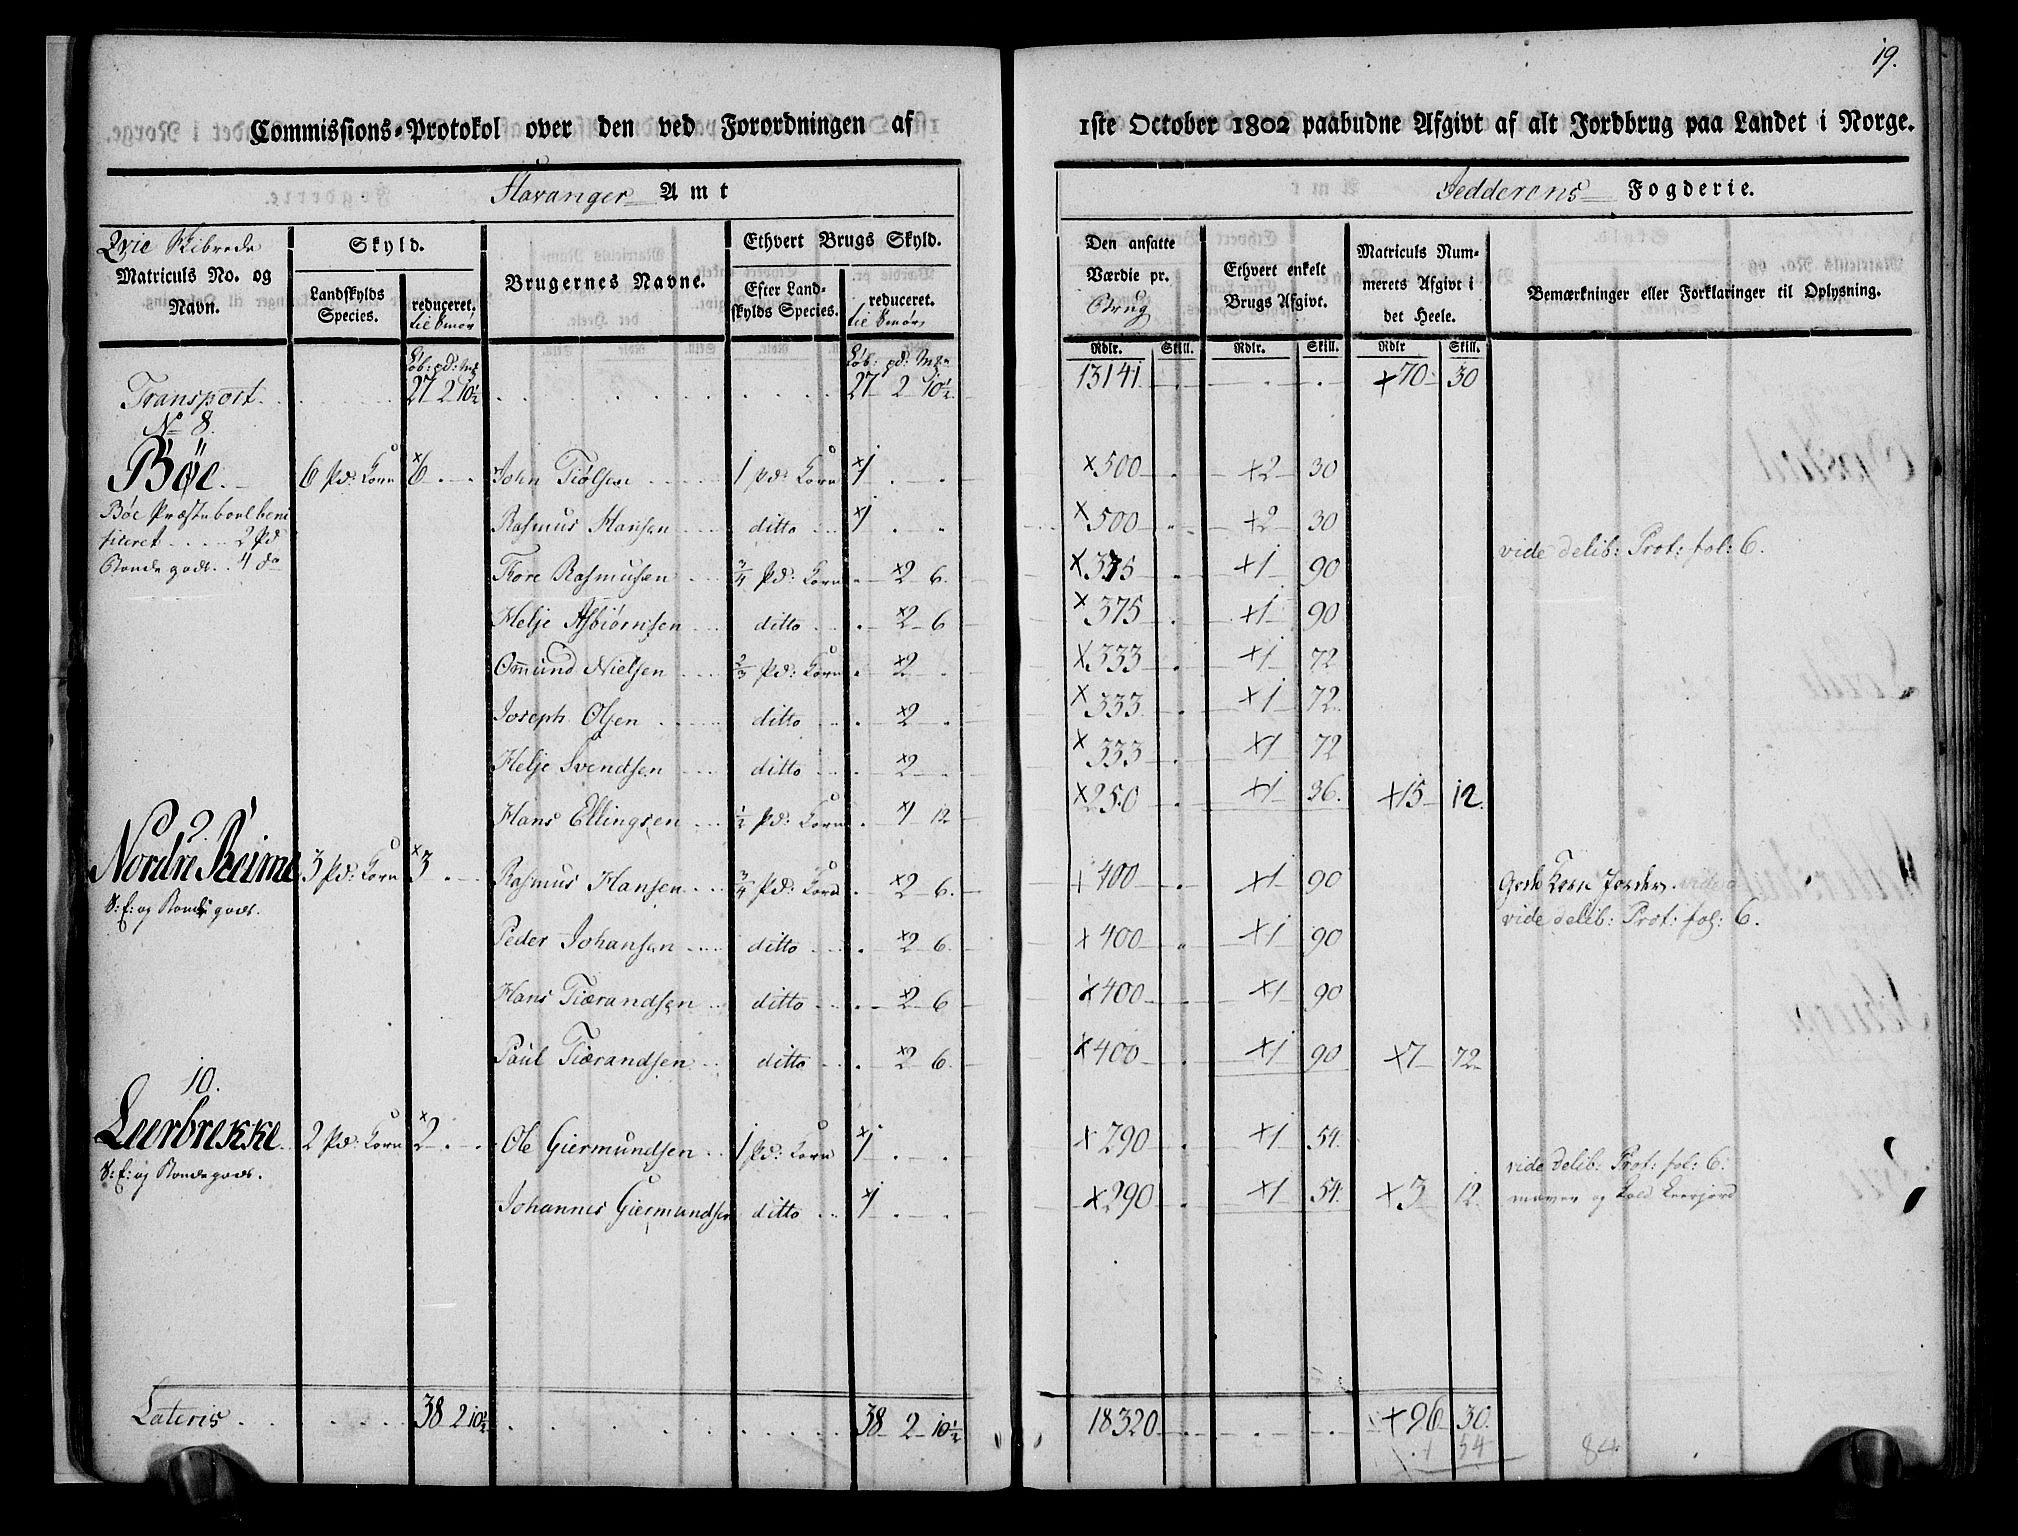 19.
Commissions-Protokol over den ved Forordningen af 1ste October 1802 paabudne Afgivt af alt Jordbrug paa Landet i Norge.
Stavanger Amt Jedderens Fogderie.
Qvie Skibrede
Matriculs No. og Navn.
Skyld.
Landskylds Species.
reduceret. til Smør
Brugernes Navne.
Ethvert Brugs Skyld.
Efter Landskylds Species.
reduceret. til Smør
Den ansatte Værdie pr. Brug
Ethvert enkelt Brugs Afgivt.
Matriculs Nummerets Afgivt i det Heele.
Bemærkninger eller Forklaringer til Oplysning.
Løb: pd: Mk Løb: pd: Mk Rdlr. Skill. Rdlr. Skill. Rdlr Skill.
Transport 27 2 10½ 27 2 10½ 13141 . . . ×70 30
No 8.
Bøe 6 Pd: Korn ×6 . . John Tiølsen 1 pd: Korn ×1 . . ×500 . ×2 30
Bøe Præsteboel beni
ficeret 2 Pd
Bondegods 4 do
Rasmus Hansen ditto ×1 . . ×500 . ×2 30
vide delib: Prot: fol: 6.
Tore Rasmusen ¾ Pd: Korn . ×2 6. ×375 . ×1 90
Helje Asbiørnsen ditto . ×2 6 ×375 . ×1 90
Omund Nielsen ⅔ Pd: Korn . ×2 . ×333 . ×1 72
Joseph Olsen ditto . ×2 . ×333 . ×1 72
Helje Svendsen ditto . ×2 . ×333 . ×1 72
Hans Ellingsen ½ Pd: Korn . ×1 12 ×250 . ×1 36. ×15 12.
9.
Nordre Reime 3 Pd: Korn ×3 . Rasmus Hansen ¾ Pd: Korn . ×2 6. ×400 . ×1 90
S: E: og Bondegods.
vide delib: Prot: fol: 6.
Peder Johansen ditto . ×2 6. ×400 . ×1 90
Hans Tiærandsen ditto . ×2 6 ×400 . ×1 90
Paul Tiærandsen ditto . ×2 6. ×400 . ×1 90 ×7 72
10.
Leerbrekke 2 Pd: Korn ×2 . . Ole Giermundsen 1 Pd: Korn ×1 . . ×290 . ×1 54.
S: E: og Bondegods.
vide delib: Prot: fol: 6.
Johannes Giermundsen ditto ×1 . . ×290 . ×1 54. ×3 12.
maver og kold Leerjord
Lateris 38 2 10½ 38 2 10½ 18320 . . . ×96 30.
1 54
84